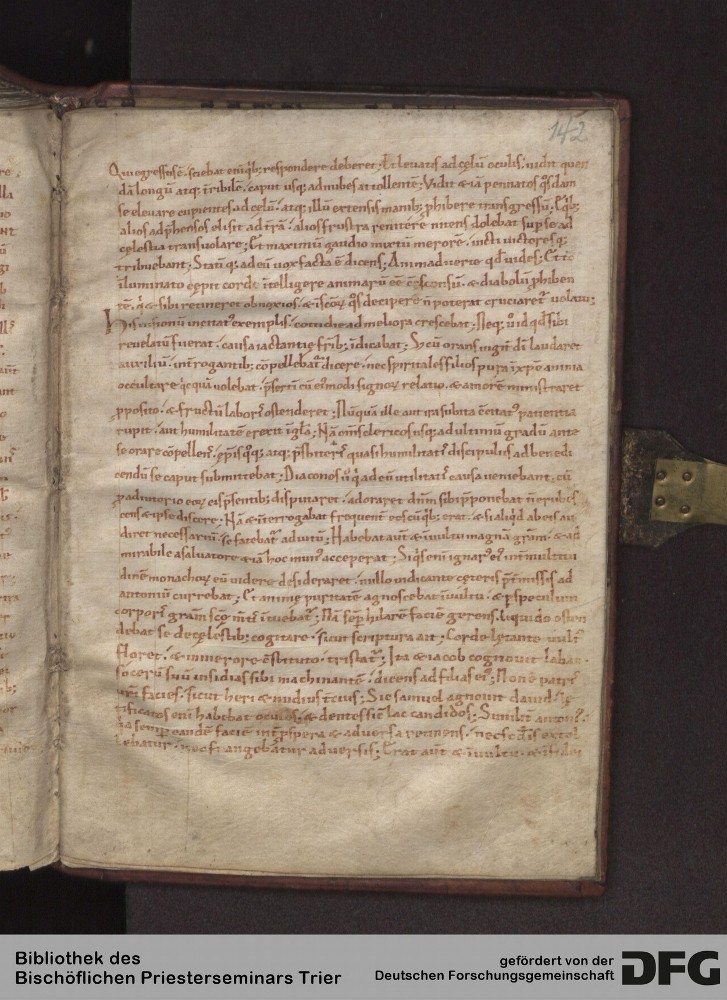 142
Qui egressus ē. sciebat eni q̄b; respondere deberet; Et levatis ad cęlū oculis. vidit quen
dā longū atq; t̄ribilē. caput usq; ad nubes attollentē; Vidit & iā pennatos q̄sdam
se elevare cupientes ad cęlū. atq; illū extensis manib; phibere transgressū. Eq̄b;
alios adp̄hensos elisit ad t̄rā. alios frustra retinere nitens dolebat sup se ad
cęlestia transvolare; Et maximū gaudio mixtū merorē. victi victoresq;
tribuebant; Statīq; ad eū vox facta ē dicens; Animadverte qd vides; Et
illuminato cępit corde intelligere animarū eē cōscensū. & diabolū phiben
tē. qi & sibi retineret obnoxios. & in scōꝝ q̄s decipere n̄ poterat cruciaret volatu;
His visionū incitatꝰ exemplis. cottidie ad meliora crescebat; Neq; v̊ id qd sibi
revelatū fuerat. causa iactantię frīb; īdicabat; S; cū orans iugit̄ dn̄i laudaret
auxiliū. int̄rogantib; cōpellebat̄ dicere. nec spiritales filios pura in xp̄o anima
occultare qcquā volebat. p̄sertī cū ei'modi signoꝝ relatio. & amorē ministraret
pposito. & fructū laboris ostenderet; Nūquā ille aut ira subita cōcitatꝰ patientiā
rupit. aut humilitatē erexit ī glā; Nā om̄s clericos usq; ad ultimū gradū ante
se orare cōpellens. ep̄is quoq; atq; p̄sbiteris quasi humilitatis discipulus ad benedi
cendū se caput submittebat; Diaconos v̊ q̄ ad eū utilitatis causa veniebant. cū
p adiutorio eoꝝ
disputaret. adoraret dn̄m sibi p̄ponebat n̄ erubes
cens & ipse discere; Nā & int̄rogabat frequent̄ eos cū q̄b; erat. & si aliqd ab eis au
diret necessariū. se fatebat̄ adiutū; Habebat aūt & in vultu magnā gr̄am. & ad
mirabile a salvatore & iā hoc munꝰ acceperat; Siqs eni ignarꝰ eiꝰ int̄ multitu
dinē monachoꝝ eū videre desideraret. nullo indicante cęteris p̄t̄missis ad
antoniū currebat; Et animę puritatē agnoscebat in vultu. & p speculum
corporis gr̄am scę mentis intuebat̄; Nā semp hilarē faciē gerens. liquido osten
debat se de cęlestib; cogitare. sicut scriptura ait; Corde lętante vultꝰ
floret. & in merore cōstituto. tristat̄; Ita & iacob cognovit laban
socerū suū insidias sibi machinantē. dicens ad filias eiꝰ; Non ē patris
vr̄i facies. sicut heri & nudiustercius; Sic samuel agnovit david. lę
tificatos eni habebat oculos. & dentes sic lac candidos; Similit̄ antoniꝰ.
q̄a semp eandē faciē int̄ prospera & adversa retinens. nec scdīs extol
lebatur. nec frangebatur adversis; Erat aūt & in vultu
Bibliothek des
Bischöflichen Priesterseminars Trier
gefördert von der
Deutschen Forschungsgemeinschaft
DFG